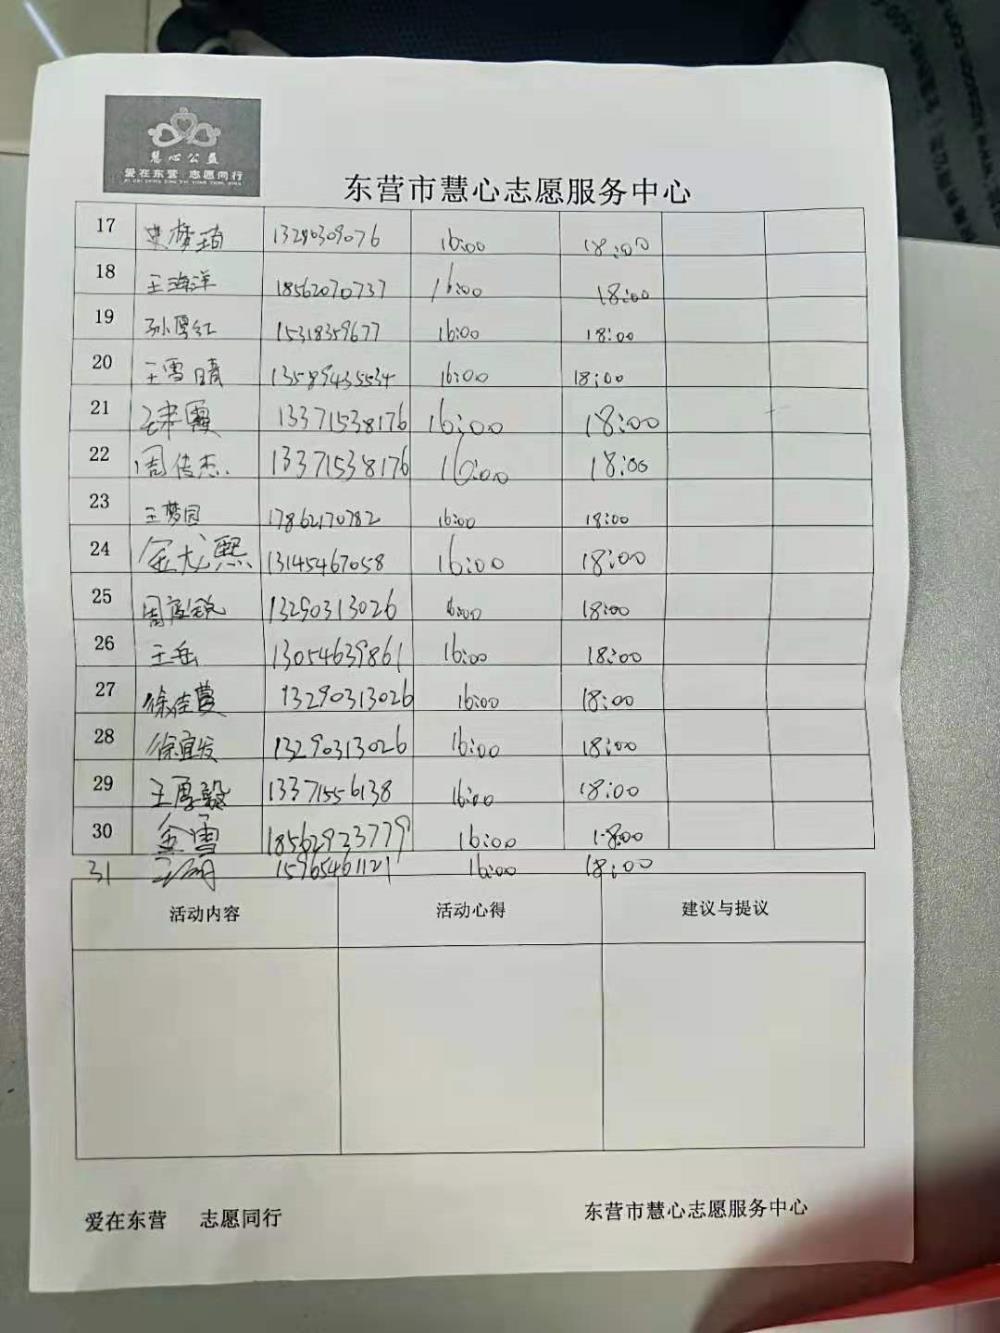 慧心公益
爱在东营 志愿同行
东营市慧心志愿服务中心
17 梦琦 13290309076 16:00 18:00
18 王海洋 18562070737 16:00 18:00
19 孙厚红 15318359677 16:00 18:00
20 王雪晴 13589435534 16:00 18:00
21 霞 13371538176 16:00 18:00
22 周传杰 13371538176 16:00 18:00
23 王梦园 17862170782 16:00 18:00
24 金龙熙 13145467058 16:00 18:00
25 周锐 13290313026 16:00 18:00
26 王岳 13054639861 16:00 18:00
27 徐佳 13290313026 16:00 18:00
28 徐宜发 13290313026 16:00 18:00
29 王厚毅 13371556138 16:00 18:00
30 金雪 18562923779 16:00 18:00
31 15965461121 16:00 18:00
活动内容 活动心得 建议与提议
爱在东营 志愿同行 东营市慧心志愿服务中心